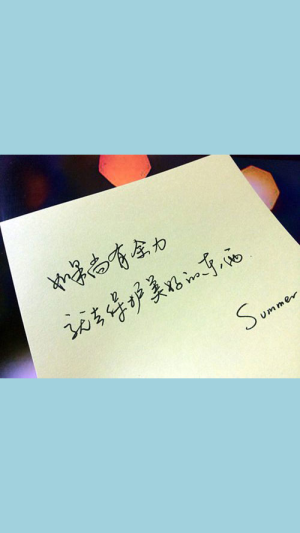 如果尚有余力
就去保护美好的东西
Summer